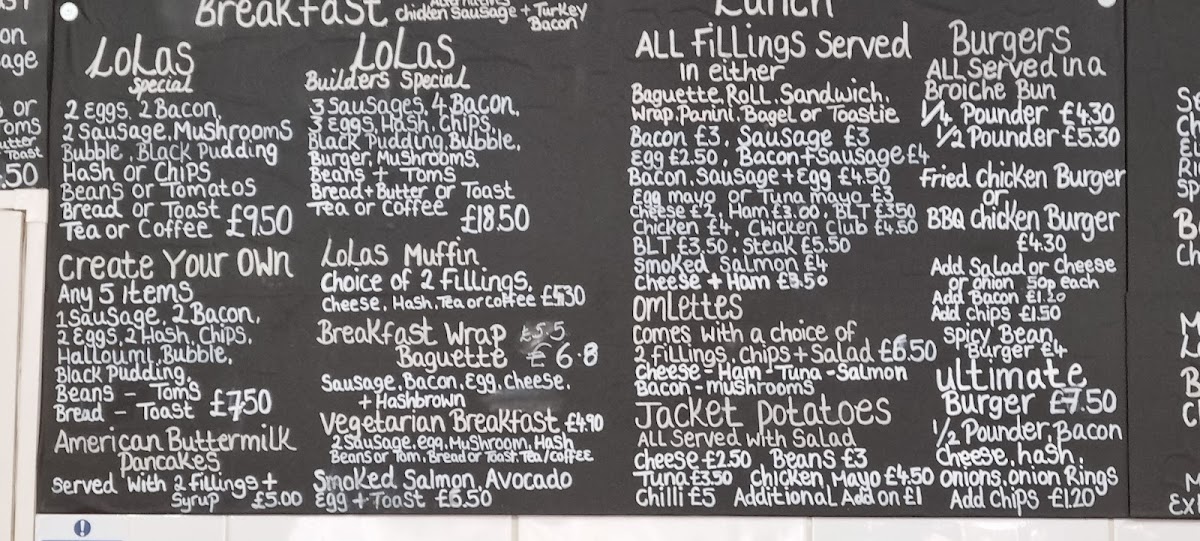 Breakfast
Alternatives
chicken sausage + Turkey
Bacon
LoLas
Special
2 Eggs. 2 Bacon,
2 Sausage, Mushrooms
Bubble, Black Pudding
Hash or Chips
Beans or Tomatos
Bread or Toast
Tea or Coffee £9.50
Create Your Own
Any 5 items
1 Sausage, 2 Bacon,
2 Eggs, 2 Hash, Chips,
Halloumi, Bubble,
Black Pudding,
Beans - Toms
Bread - Toast £7.50
American Buttermilk
Pancakes
Served With 2 fillings +
Syrup £5.00
LoLas
Builders Special
3 Sausages, 4 Bacon,
3 Eggs, Hash, Chips,
Black Pudding, Bubble,
Burger, Mushrooms,
Beans + Toms
Bread + Butter or Toast
Tea or Coffee £18.50
LoLas Muffin
Choice of 2 Fillings,
Cheese, Hash, Tea or Coffee £5.30
Breakfast Wrap £5.5
Baguette £6.8
Sausage, Bacon, Egg, Cheese,
+ Hashbrown
Vegetarian Breakfast £4.90
2 Sausage, egg, Mushroom, Hash
Beans or Tom, Bread or Toast, Tea/Coffee
Smoked Salmon, Avocado
Egg + Toast £6.50
Lunch
ALL Fillings Served
in either
Baguette, Roll, Sandwich,
Wrap, Panini, Bagel or Toastie
Bacon £3, Sausage £3
Egg £2.50, Bacon + Sausage £4
Bacon, Sausage + Egg £4.50
Egg mayo or Tuna mayo £3
Cheese £2, Ham £3.00, BLT £3.50
Chicken £4, Chicken Club £4.50
BLT £3.50, Steak £5.50
Smoked Salmon £4
Cheese + Ham £3.50
Omlettes
Comes with a choice of
2 fillings, chips + Salad £6.50
Cheese - Ham - Tuna - Salmon
Bacon - mushrooms
Jacket Potatoes
All Served With Salad
Cheese £2.50 Beans £3
Tuna £3.50 Chicken Mayo £4.50
Chilli £5 Additional Add on £1
Burgers
ALL Served in a
Broiche Bun
1/4 Pounder £4.30
1/2 Pounder £5.30
Fried Chicken Burger
or
BBQ Chicken Burger
£4.30
Add Salad or Cheese
or onion 50p each
Add Bacon £1.20
Add Chips £1.50
Spicy Bean
Burger £4
Ultimate
Burger £7.50
1/2 Pounder, Bacon
Cheese, hash,
Onions, onion Rings
Add Chips £1.20